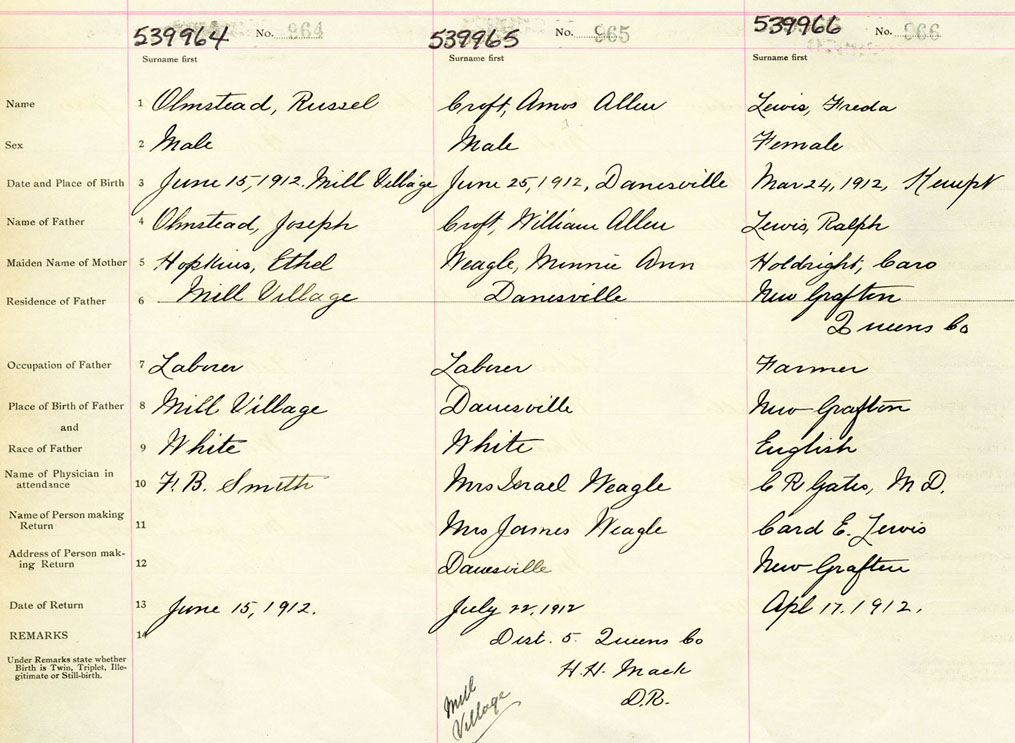 539964 No. 964 539965 No. 965 539966 No. 966
Surname first Surname first Surname first
Name 1 Olmstead, Russel Croft, Amos Allen Lewis, Freda
Sex 2 Male Male Female
Date and Place of Birth 3 June 15, 1912. Mill Village June 25, 1912, Danesville Mar 24, 1912, Kempt
Name of Father 4 Olmstead, Joseph Croft, William Allen Lewis, Ralph
Maiden Name of Mother 5 Hopkins, Ethel Weagle, Minnie Ann Holdright, Caro
Residence of Father 6 Mill Village Danesville New Grafton
Queens Co
Occupation of Father 7 Laborer Laborer Farmer
Place of Birth of Father 8 Mill Village Danesville New Grafton
and
Race of Father 9 White White English
Name of Physician in
attendance 10 F. B. Smith Mrs Israel Weagle C R Gates, M D.
Name of Person making
Return 11 Mrs James Weagle Card E. Lewis
Address of Person mak-
ing Return 12 Danesville New Grafton
Date of Return 13 June 15, 1912. July 22, 1912 Apl 17. 1912.
REMARKS 14 Dist. 5. Queens Co
Under Remarks state whether
Birth is Twin, Triplet, Ille-
gitimate or Still-birth.
H. H. Mack
D.R.
Mill
Village